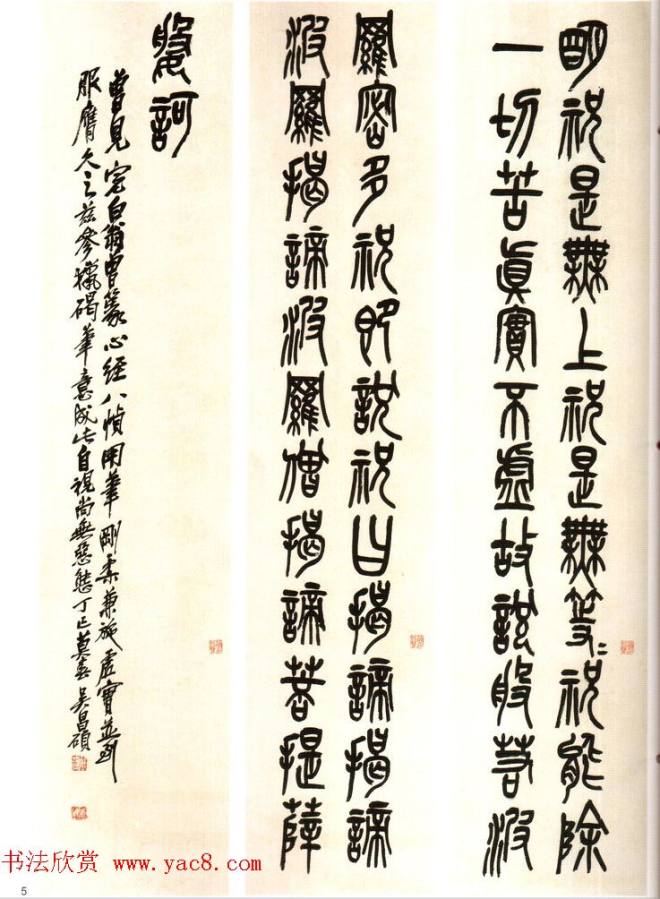 明祝是無上祝是無等〻祝能除
一切苦真實不虛故說般若波
羅密多祝即說祝曰揭諦揭諦
波羅揭諦波羅僧揭諦菩提薩
婆訶
曾見完白翁曾篆心經八幀用筆剛柔兼施虛實並到
服膺久之茲參獵碣筆意成此自視尚無惡態丁巳莫春吳昌碩
书法欣赏 www.yac8.com
5